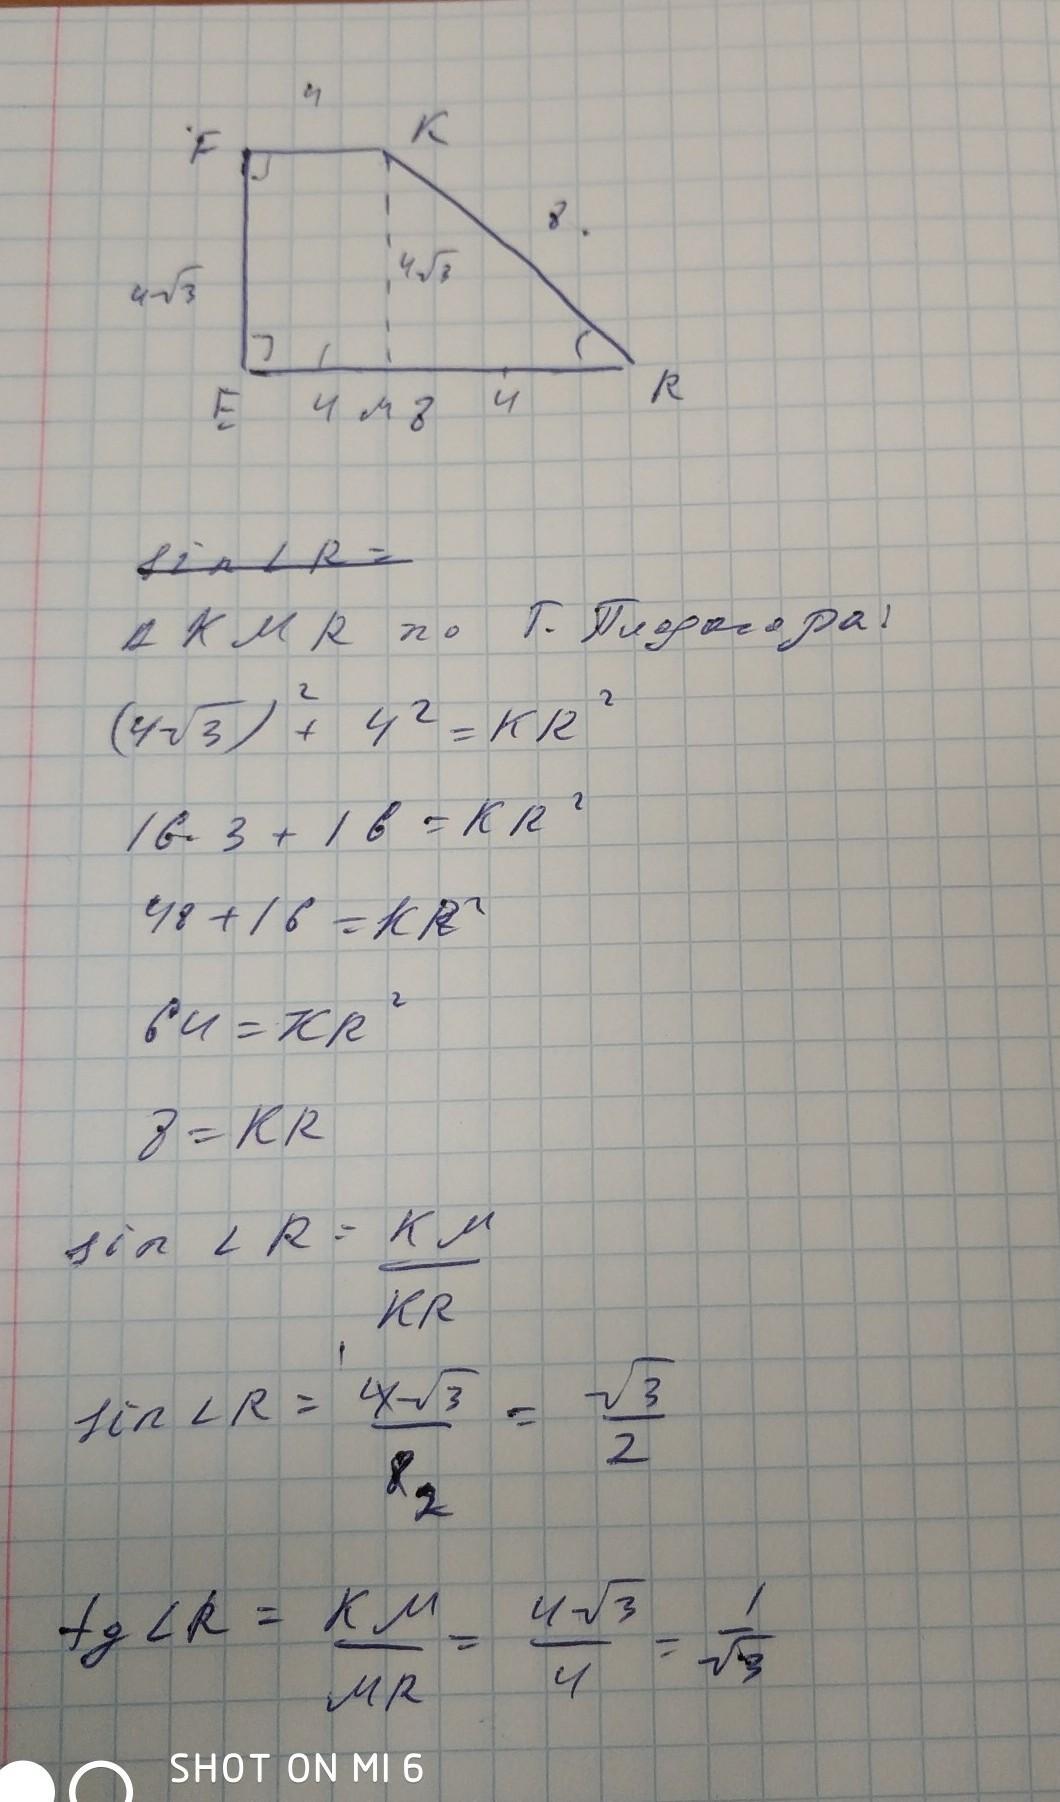 4
F K
8.
4√3 4√3
E 4 M 8 4 R
sin ∠ R =
Δ K M R по Т. Пифагора:
(4√3)² + 4² = KR²
16·3 + 16 = KR²
48 + 16 = KR²
64 = KR²
8 = KR
sin ∠ R = KM / KR
sin ∠ R = 4√3 / 8 = √3 / 2
1 2
tg ∠ R = KM / MR = 4√3 / 4 = 1 / √3
SHOT ON MI 6